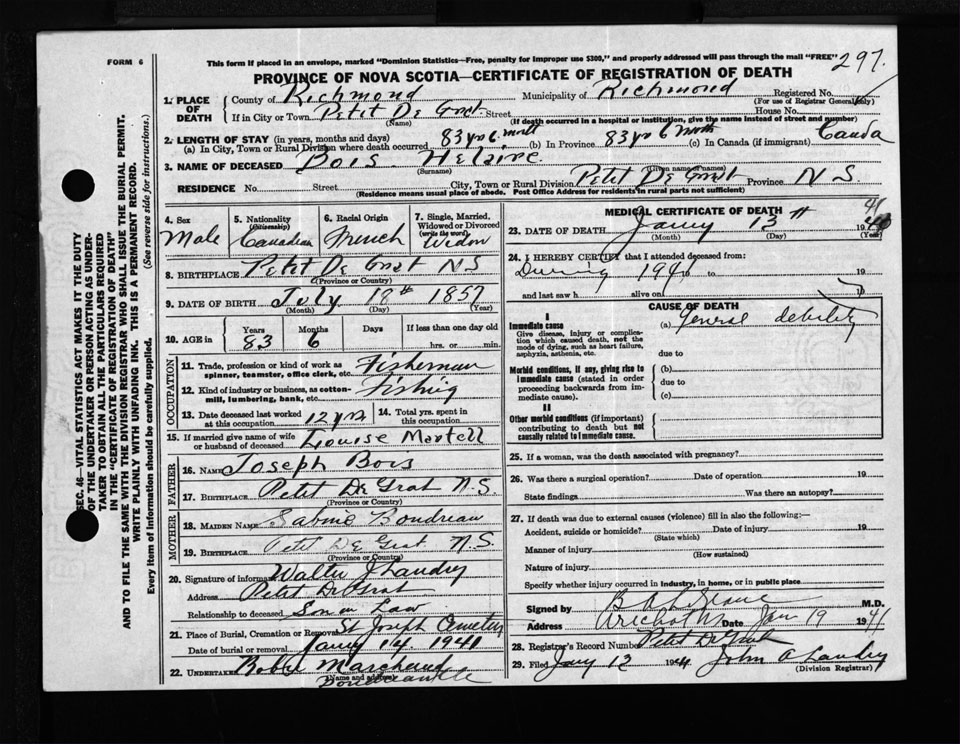 FORM 6
This form if placed in an envelope, marked "Dominion Statistics—Free, penalty for improper use $300," and properly addressed will pass through the mail "FREE"
297.
PROVINCE OF NOVA SCOTIA—CERTIFICATE OF REGISTRATION OF DEATH
1. PLACE OF DEATH
County of Richmond Municipality of Richmond Registered No.
(For use of Registrar General only)
If in City or Town Petit De Grat Street House No.
(Name) (If death occurred in a hospital or institution, give the name instead of street and number)
2. LENGTH OF STAY (in years, months and days)
(a) In City, Town or Rural Division where death occurred 83 yrs 6 (b) In Province 83 yrs 6 (c) In Canada (if immigrant) Canda
3. NAME OF DECEASED Bois Helaire
(Surname) (Given name or names)
RESIDENCE No. Street City, Town or Rural Division Petit De Grat Province N S.
(Residence means usual place of abode. Post Office Address for residents in rural parts not sufficient)
4. Sex Male
5. Nationality (Citizenship) Canadian
6. Racial Origin French
7. Single, Married, Widowed or Divorced (write the word)
8. BIRTHPLACE Petit De Grat N S
(Province or Country)
9. DATE OF BIRTH July 18th 1857
(Month) (Day) (Year)
10. AGE in
Years 83
Months 6
Days
If less than one day old
hrs. or min.
OCCUPATION
11. Trade, profession or kind of work as spinner, teamster, office clerk, etc. Fisherman
12. Kind of industry or business, as cotton-mill, lumbering, bank, etc. Fishing
13. Date deceased last worked at this occupation 12 yrs
14. Total yrs. spent in this occupation
15. If married give name of wife or husband of deceased Louise Martell
FATHER
16. NAME Joseph Bois
17. BIRTHPLACE Petit De Grat N.S.
(Province or Country)
MOTHER
18. MAIDEN NAME Sabine Boudreau
19. BIRTHPLACE Petit De Grat N.S.
(Province or Country)
20. Signature of informant Walter J Landry
Address Petit De Grat
Relationship to deceased Son in Law
21. Place of Burial, Cremation or Removal St Joseph Cemetery
Date of burial or removal Jany 14. 1941
22. UNDERTAKER Marchand
(Name and address)
MEDICAL CERTIFICATE OF DEATH
23. DATE OF DEATH Jany 13th 1941
(Month) (Day) (Year)
24. I HEREBY CERTIFY that I attended deceased from:
During 1940 to 19
and last saw h alive on 19
CAUSE OF DEATH
I
Immediate cause
Give disease, injury or complication which caused death, not the mode of dying, such as heart failure, asphyxia, asthenia, etc.
(a) General debility
due to
Morbid conditions, if any, giving rise to immediate cause (stated in order proceeding backwards from immediate cause).
(b)
due to
(c)
II
Other morbid conditions (if important) contributing to death but not causally related to immediate cause.
25. If a woman, was the death associated with pregnancy?
26. Was there a surgical operation? Date of operation 19
State findings Was there an autopsy?
27. If death was due to external causes (violence) fill in also the following:—
Accident, suicide or homicide? Date of injury 19
(State which)
Manner of injury
(How sustained)
Nature of injury
Specify whether injury occurred in industry, in home, or in public place
Signed by M.D.
Address Arichat NS Date Jan 19 1941
28. Registrar's Record Number Petit De Grat
29. Filed Jany 12 1941 John A Landry
(Division Registrar)
SEC. 46—VITAL STATISTICS ACT MAKES IT THE DUTY
OF THE UNDERTAKER OR PERSON ACTING AS UNDER-
TAKER TO OBTAIN ALL THE PARTICULARS REQUIRED
IN THE "CERTIFICATE OF REGISTRATION OF DEATH"
AND TO FILE THE SAME WITH THE DIVISION REGISTRAR WHO SHALL ISSUE THE BURIAL PERMIT.
WRITE PLAINLY WITH UNFADING INK. THIS IS A PERMANENT RECORD.
Every item of information should be carefully supplied. (See reverse side for instructions.)